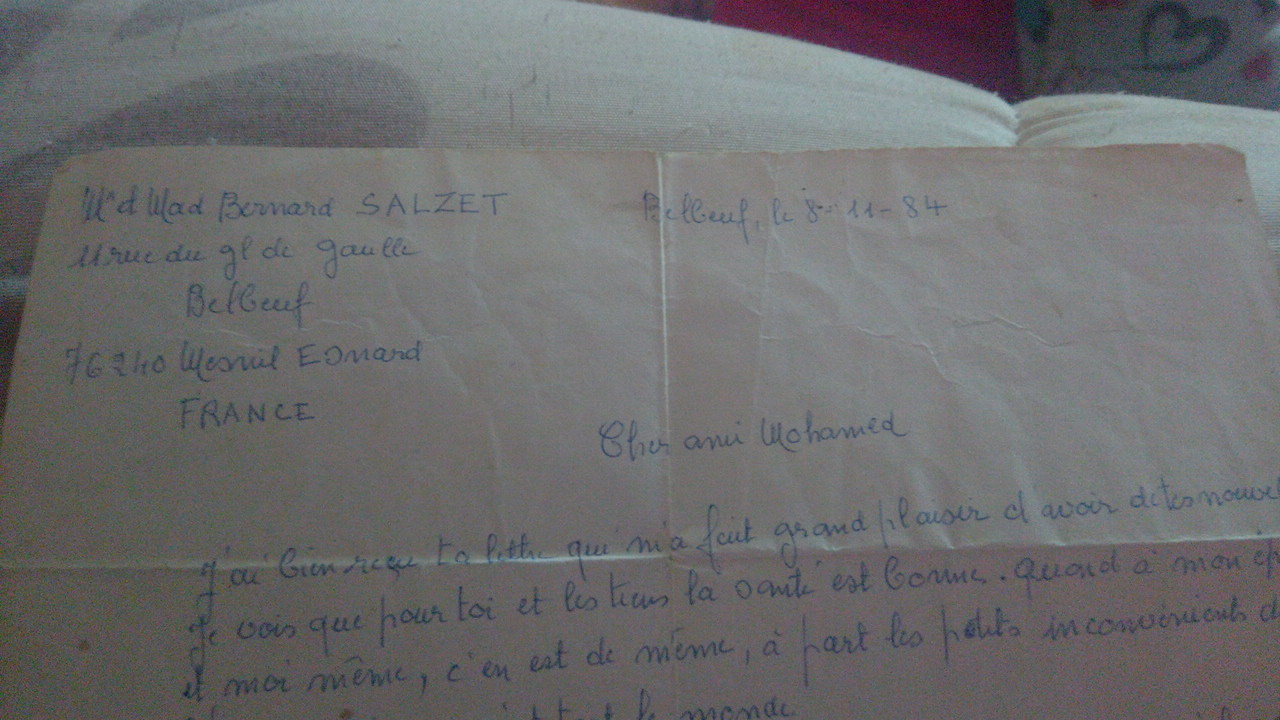 Mr d Mad Bernard SALZET
Belbeuf, le 8-11-84
11 rue du gl de gaulle
Belbeuf
76240 Mesnil ESnard
FRANCE
Cher ami Mohamed
J'ai bien reçu ta lettre qui m'a fait grand plaisir d avoir de tes nouvel
Je vois que pour toi et les tiens la santé est bonne. Quand à mon ép
et moi même, c'en est de même, à part les petits inconvénients d
tout le monde